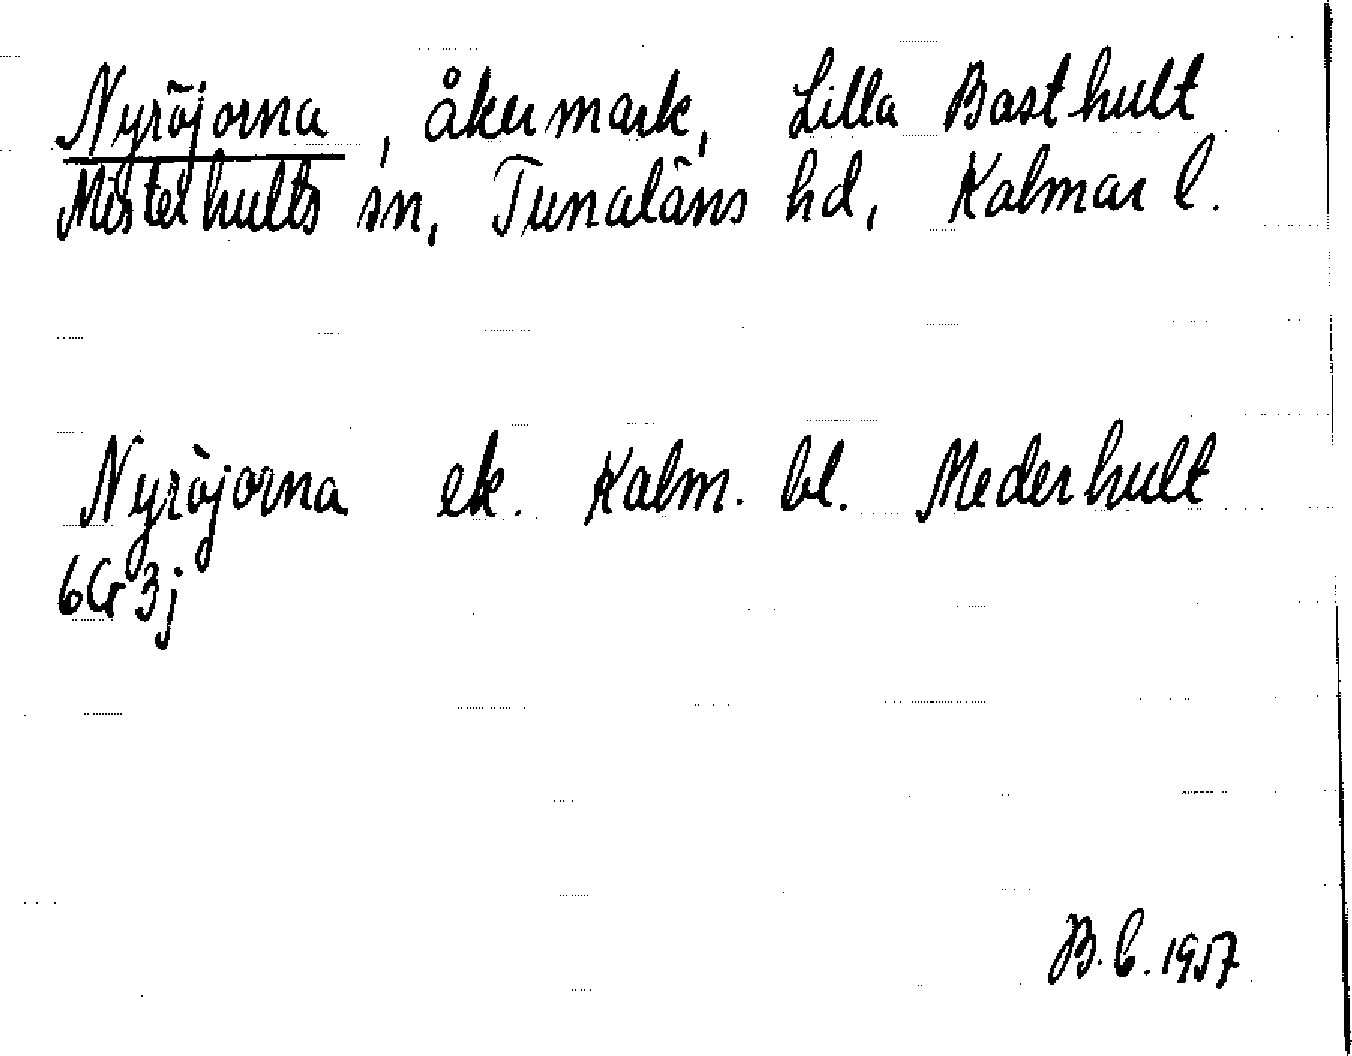 Nyröjorna, åkermark, Lilla Basthult
Misterhults sn, Tunaläns hd, Kalmar l.
Nyröjorna ek. Kalm. bl. Mederhult
6G3j
B.C. 1957